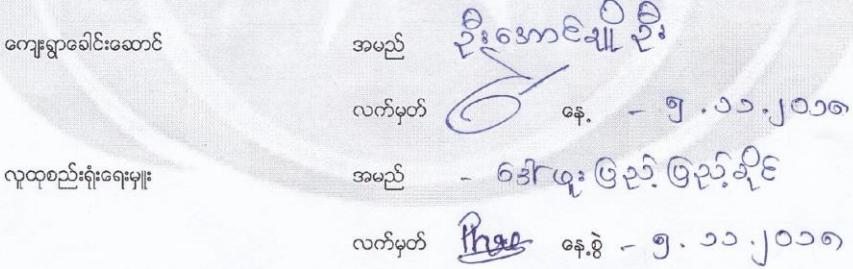 ကျေးရွာခေါင်းဆောင် အမည် ဦးအောင်ချိုဦး
လက်မှတ် နေ့ - ၅.၁၁.၂၀၁၈
လူထုစည်းရုံးရေးမှူး အမည် - ဒေါ်ဖူးပြည့်ပြည့်ခိုင်
လက်မှတ် နေ့စွဲ - ၅.၁၁.၂၀၁၈